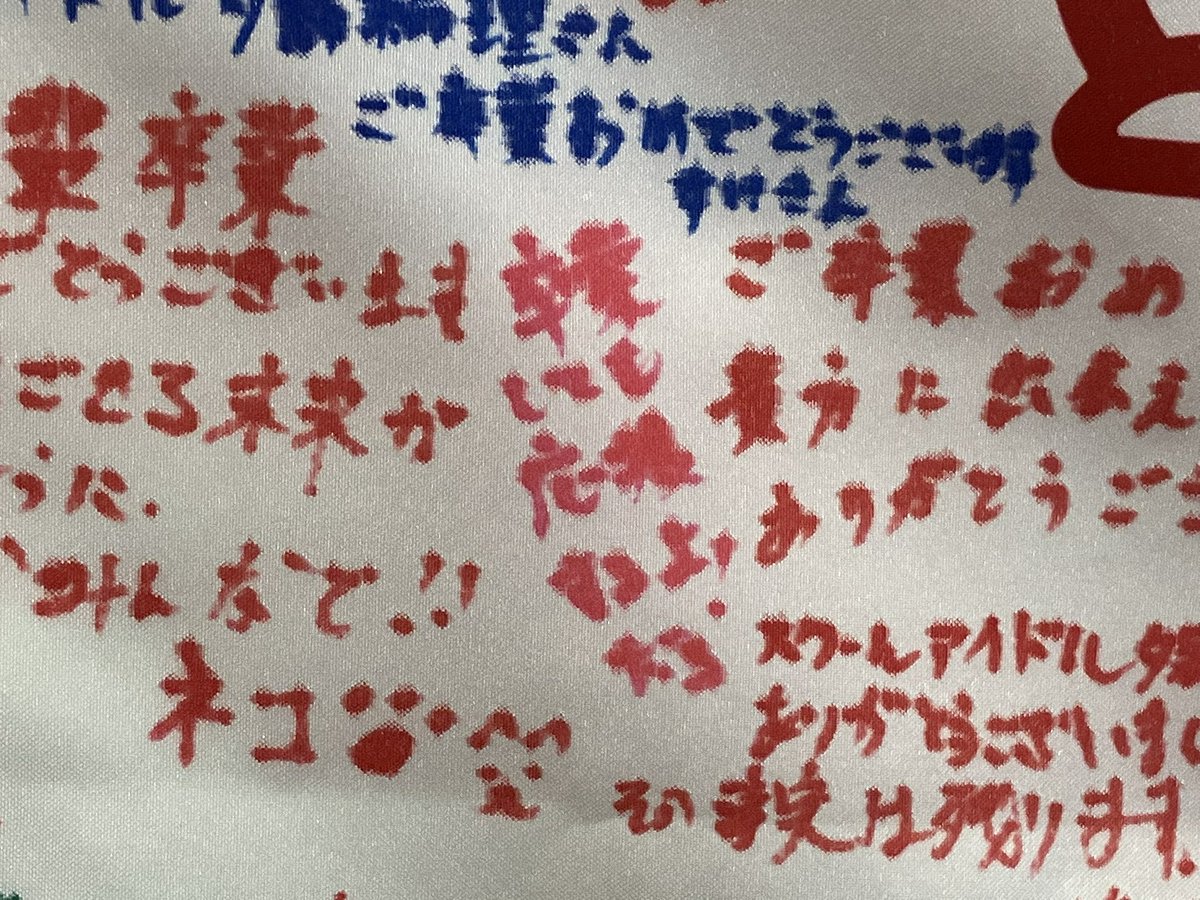 理さん
ご卒業おめでとうございます
すけさん
卒業
どうございます
ごせる未来が
うに.
みんなで!!
ネコ
卒業
しても
応援
わよ!
たろ
ご卒業おめ
貴方に出会え
ありがとうござ
スクールアイドル
ありがとうございまし
その事実は残ります.